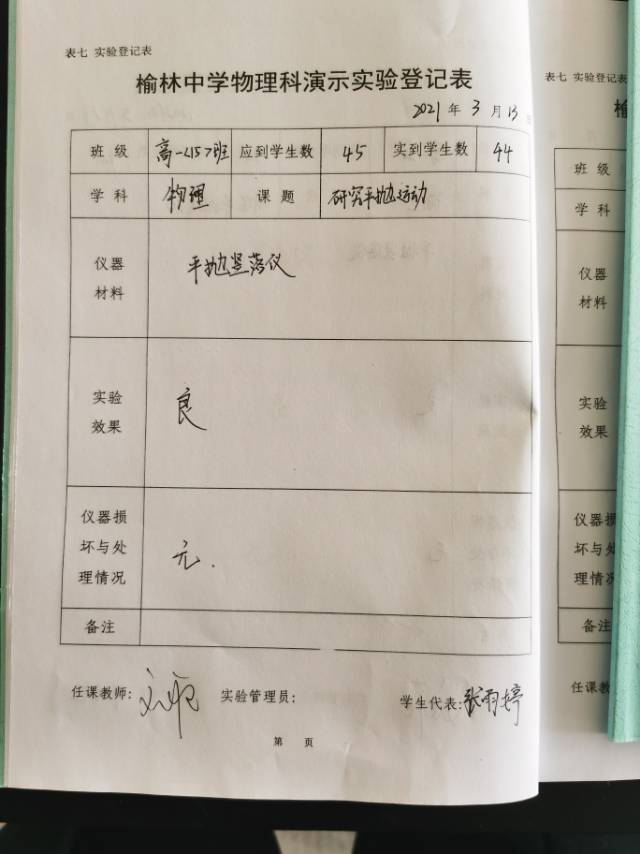 表七 实验登记表
榆林中学物理科演示实验登记表
2021 年 3 月 13
班 级 高一<15>班 应到学生数 45 实到学生数 44
学 科 物理 课 题 研究平抛运动
仪器
材料
平抛竖落仪
实验
效果
良
仪器损
坏与处
理情况
元.
备注
任课教师: 实验管理员: 学生代表: 张雨婷
第 页
表七 实验登记表
班 级
学 科
仪器
材料
实验
效果
仪器损
坏与处
理情况
备注
任课教